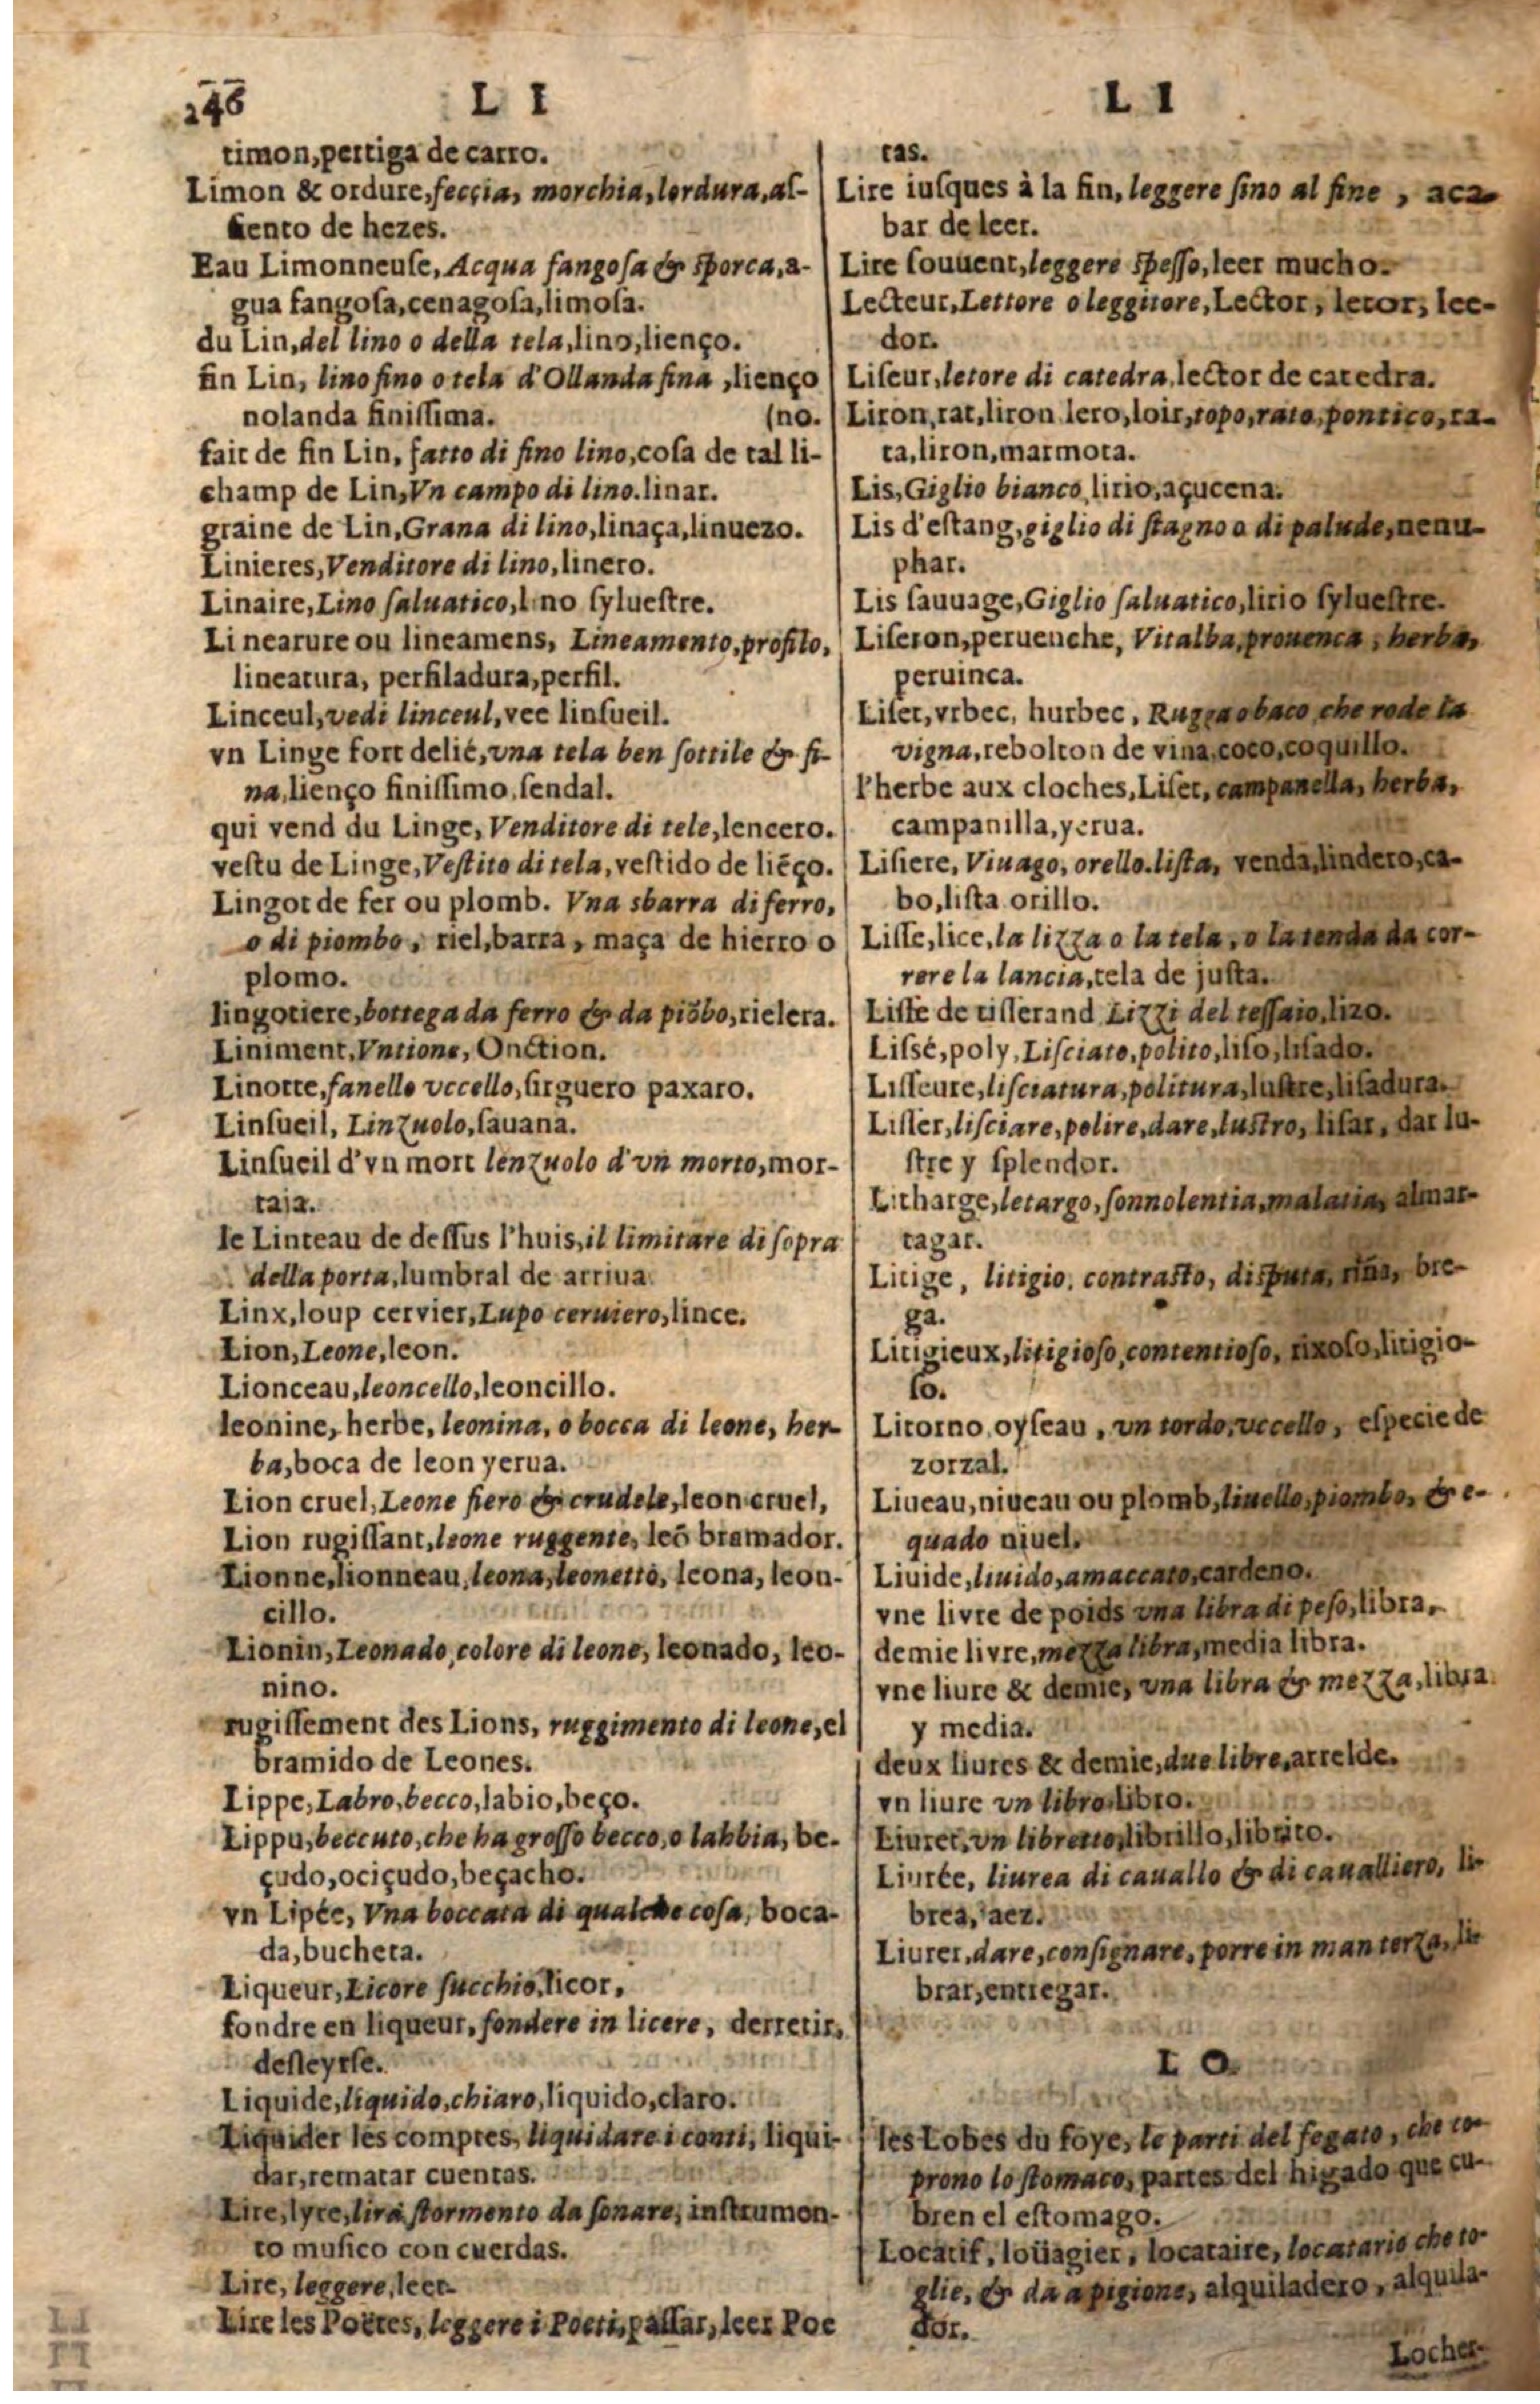 246 L I
timon,pertiga de carro.
Limon & ordure,feccia, morchia,lordura,aſ-
ſiento de hezes.
Eau Limonneuſe, Acqua fangoſa & ſporca,a-
gua fangoſa,cenagoſa,limoſa.
du Lin,del lino o della tela,lino,lienço.
fin Lin, lino fino o tela d'Ollanda fina ,lienço
nolanda finiſſima. (no.
fait de fin Lin, fatto di fino lino,coſa de tal li-
champ de Lin,Vn campo di lino.linar.
graine de Lin,Grana di lino,linaça,linuezo.
Linieres,Venditore di lino,linero.
Linaire,Lino ſaluatico,lino ſylueſtre.
Linearure ou lineamens, Lineamento,profilo,
lineatura, perfiladura,perfil.
Linceul,vedi linceul,vee linſueil.
vn Linge fort delié,vna tela ben ſottile & fi-
na,lienço finiſſimo,ſendal.
qui vend du Linge, Venditore di tele,lencero.
veſtu de Linge,Veſtito di tela,veſtido de liẽço.
Lingot de fer ou plomb. Vna sbarra di ferro,
o di piombo, riel,barra, maça de hierro o
plomo.
lingotiere,bottega da ferro & da piõbo,rielera.
Liniment,Vntione, Onction.
Linotte,fanello vccello,ſirguero paxaro.
Linſueil, Linzuolo,ſauana.
Linſueil d'vn mort lenzuolo d'vn morto,mor-
taja.
le Linteau de deſſus l'huis,il limitare di ſopra
della porta,lumbral de arriua
Linx,loup cervier,Lupo ceruiero,lince.
Lion,Leone,leon.
Lionceau,leoncello,leoncillo.
leonine, herbe, leonina, o bocca di leone, her-
ba,boca de leon yerua.
Lion cruel,Leone fiero & crudele,leon cruel,
Lion rugiſſant,leone ruggente, leõ bramador.
Lionne,lionneau,leona,leonetto, leona, leon-
cillo.
Lionin,Leonado,colore di leone, leonado, leo-
nino.
rugiſſement des Lions, ruggimento di leone,el
bramido de Leones.
Lippe,Labro,becco,labio,beço.
Lippu,beccuto,che ha groſſo becco,o labbia, be-
çudo,ociçudo,beçacho.
vn Lipée, Vna boccata di qualche coſa, boca-
da,bucheta.
Liqueur,Licore ſucchio,licor,
fondre en liqueur,fondere in licere, derretir,
deſleyrſe.
Liquide,liquido,chiaro,liquido,claro.
Liquider les comptes, liquidare i conti, liqui-
dar,rematar cuentas.
Lire,lyre,lira ſtormento da ſonare, inſtrumen-
to muſico con cuerdas.
Lire, leggere,leer.
Lire les Poëtes, leggere i Poeti,paſſar,leer Poe
L I
tas.
Lire iuſques à la fin, leggere ſino al fine , aca-
bar de leer.
Lire ſouuent,leggere ſpeſſo,leer mucho.
Lecteur,Lettore o leggitore,Lector, letor, lee-
dor.
Liſeur,letore di catedra,lector de catedra.
Liron,rat,liron lero,loir,topo,rato,pontico,ra-
ta,liron,marmota.
Lis,Giglio bianco,lirio,açucena.
Lis d'eſtang,giglio di ſtagno o di palude,nenu-
phar.
Lis ſauuage,Giglio ſaluatico,lirio ſylueſtre.
Liſeron,peruenche, Vitalba,prouenca, herba,
peruinca.
Liſet,vrbec, hurbec, Ruzza o baco che rode la
vigna,rebolton de vina,coco,coquillo.
l'herbe aux cloches,Liſet, campanella, herba,
campanilla,yerua.
Liſiere, Viuago, orello.liſta, venda,lindero,ca-
bo,liſta orillo.
Liſſe,lice,la lizza o la tela, o la tenda da cor-
rere la lancia,tela de juſta.
Liſſe de tiſſerand Lizzi del teſſaio,lizo.
Liſsé,poly,Liſciato,polito,liſo,liſado.
Liſſeure,liſciatura,politura,luſtre,liſadura.
Liſſer,liſciare,polire,dare,luſtro, liſar, dar lu-
ſtre y ſplendor.
Litharge,letargo,ſonnolentia,malatia, almar-
tagar.
Litige, litigio, contraſto, diſputa, riña, bre-
ga.
Litigieux,litigioſo,contentioſo, rixoſo,litigio-
ſo.
Litorno oyſeau , vn tordo,vccello, eſpecie de
zorzal.
Liueau,niueau ou plomb,liuello,piombo, & e-
quado niuel.
Liuide,liuido,amaccato,cardeno.
vne livre de poids vna libra di peſo,libra,
demie livre,mezza libra,media libra.
vne liure & demie, vna libra & mezza,libra
y media.
deux liures & demie,due libre,arrelde.
vn liure vn libro,libro.
Liuret,vn libretto,librillo,librito.
Liurée, liurea di cauallo & di caualliero, li-
brea, aez.
Liurer,dare,conſignare, porre in man terza, li-
brar,entregar.
L O
les Lobes du foye, le parti del fegato, che co-
prono lo ſtomaco, partes del higado que cu-
bren el eſtomago.
Locatif, loüagier, locataire, locatario che to-
glie, & da a pigione, alquiladero, alquila-
dor.
Locher-